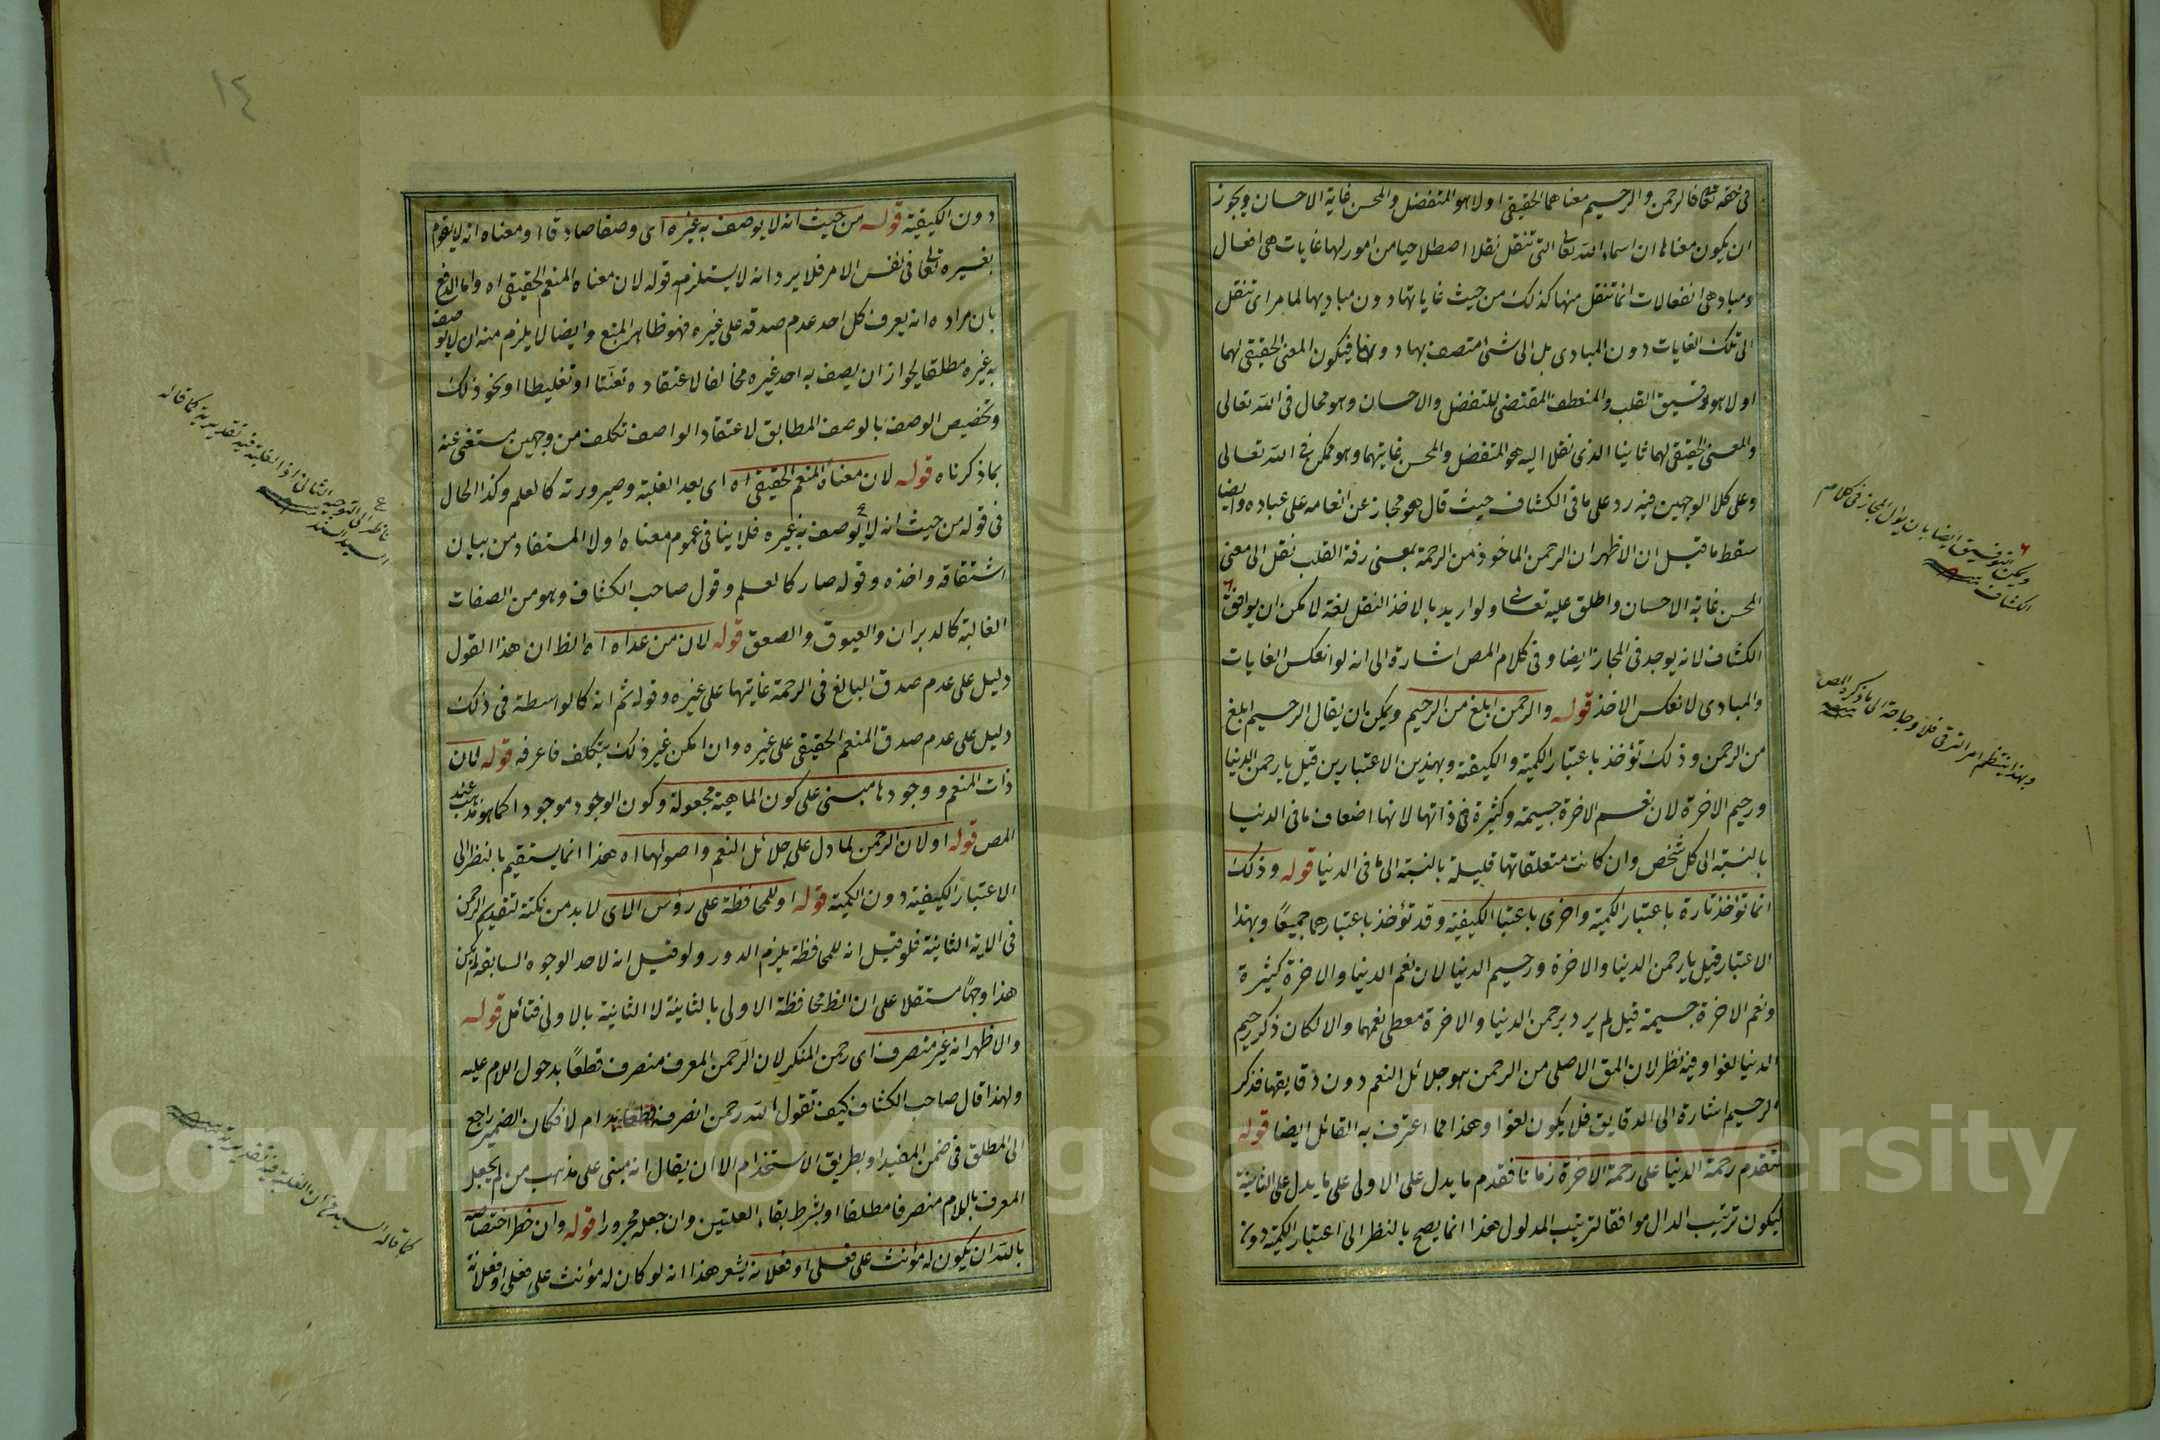 في حقه تعالى فالرحمن والرحيم معناهما الحقيقي اولا هو المتفضل والمحسن غاية الاحسان ويجوز
ان يكون معناه ان اسماء الله تعالى التي تنقل نقلا اصطلاحيا من امور لها غايات هي افعال
ومباد هي انفعالات انما تنقل منها كذلك من حيث غاياتها دون مباديها لما مر اي تنقل
الى تلك الغايات دون المبادي بل الى شيء متصف بها دونها فيكون المعنى الحقيقي لهما
اولا هو رقيق القلب والمنعطف المقتضي للتفضل والاحسان وهو محال في الله تعالى
والمعنى الحقيقي لهما ثانيا الذي نقلا اليه هو المتفضل والمحسن غايتهما وهو ممكن في الله تعالى
وعلى كلا الوجهين فيه رد على ما في الكشاف حيث قال هو مجاز عن انعامه على عباده وايضا
سقط ما قيل ان الاظهر ان الرحمن الماخوذ من الرحمة بمعنى رقة القلب نقل الى معنى
المحسن غاية الاحسان واطلق عليه تعالى ولو اريد بالاخذ النقل لغة لامكن ان يوافق
الكشاف لانه يوجد في المجاز ايضا وفي كلام المص اشارة الى انه لو انعكس الغايات
والمبادي لانعكس الاخذ قوله والرحمن ابلغ من الرحيم ويمكن ان يقال الرحيم ابلغ
من الرحمن وذلك تؤخذ باعتبار الكمية والكيفية وبهذين الاعتبارين قيل يا رحمن الدنيا
ورحيم الاخرة لان نعم الاخرة جسيمة وكثيرة في ذاتها لانها اضعاف ما في الدنيا
بالنسبة الى كل شخص وان كانت متعلقاتها قليلة بالنسبة الى ما في الدنيا قوله وذلك
انما تؤخذ تارة باعتبار الكمية واخرى باعتبار الكيفية وقد تؤخذ باعتبارهما جميعًا وبهذا
الاعتبار قيل يا رحمن الدنيا والاخرة ورحيم الدنيا لان نعم الدنيا والاخرة كثيرة
ونعم الاخرة جسيمة قيل لم يرد برحمن الدنيا والاخرة معطي نعمهما والا لكان ذكر رحيم
الدنيا لغوا وفيه نظر لان المق الاصلي من الرحمن هو جلائل النعم دون دقايقها فذكر
الرحيم اشارة الى الدقايق فلا يكون لغوا وهذا مما اعترف به القائل ايضا قوله
لتقدم رحمة الدنيا على رحمة الاخرة زمانا فقدم ما يدل على الاولى على ما يدل على الثانية
ليكون ترتيب الدال موافقا لترتيب المدلول هذا انما يصح بالنظر الى اعتبار الكمية دون
ويمكن التوفيق ايضا بان يؤل المجاز في كلام
الكشاف
وبهذا ينتظم امر الترقي فلا حاجة الى ما ذكره المص
١٤
دون الكيفية قوله من حيث انه لا يوصف به غيره اى وصفا صادقا او معناه انه لا يقوم
بغيره تعالى في نفس الامر فلا يرد انه لا يستلزمه قوله لان معناه المنعم الحقيقي اه واما الدفع
بان مراده انه يعرف كل احد عدم صدقه على غيره فهو ظاهر المنع وايضا لا يلزم منه ان لا يوصف
به غيره مطلقا لجواز ان يصف به احد غيره مخالفا لاعتقاده تعنتا او تغليطا او نحو ذلك
وتخصيص الوصف بالوصف المطابق لاعتقاد الواصف تكلف من وجهين مستغنى عنه
بما ذكرناه قوله لان معناه المنعم الحقيقي اه اي بعد الغلبة وصيرورته كالعلم وكذا الحال
في قوله من حيث انه لا يوصف به غيره فلا ينافي عموم معناه اولا المستفاد من بيان
اشتقاقه واخذه وقوله صار كالعلم وقول صاحب الكشاف وهو من الصفات
الغالبة كالدبران والعيوق والصعق قوله لان من عداه اه الظ ان هذا القول
دليل على عدم صدق البالغ في الرحمة غايتها على غيره وقوله ثم انه كالواسطة في ذلك
دليل على عدم صدق المنعم الحقيقي على غيره وان امكن غير ذلك بتكلف فاعرفه قوله لان
ذات المنعم ووجودها مبني على كون الماهية مجعولة وكون الوجود موجودا كما هو مذهب عند
المص قوله او لان الرحمن لما دل على جلائل النعم واصولها اه هذا انما يستقيم بالنظر الى
الاعتبار الكيفية دون الكمية قوله او للمحافظة على رؤس الاي لا بد من نكتة لتقديم الرحمن
في الاية الثانية فلو قيل انه للمحافظة يلزم الدور ولو قيل انه لاحد الوجوه السابقة لم يكن
هذا وجهًا مستقلا على ان الظ محافظة الاولى بالثانية لا الثانية بالاولى فتأمل قوله
والاظهر انه غير منصرف اى رحمن المنكر لان الرحمن المعرف منصرف قطعًا بدخول اللام عليه
ولهذا قال صاحب الكشاف كيف تقول الله رحمن اتصرفه ام لا فكان الضمير راجع
الى المطلق في ضمن المقيد او بطريق الاستخدام الا ان يقال انه مبني على مذهب من لم يجعل
المعرف باللام منصرفا مطلقا او بشرط بقاء العلتين وان جعله مجرورا قوله وان حظر اختصاصه
بالله ان يكون له مؤنث على فعلى او فعلانة يشعر هذا انه لو كان له مؤنث على فعلى او فعلانة
السيد السند
كما قاله السيد